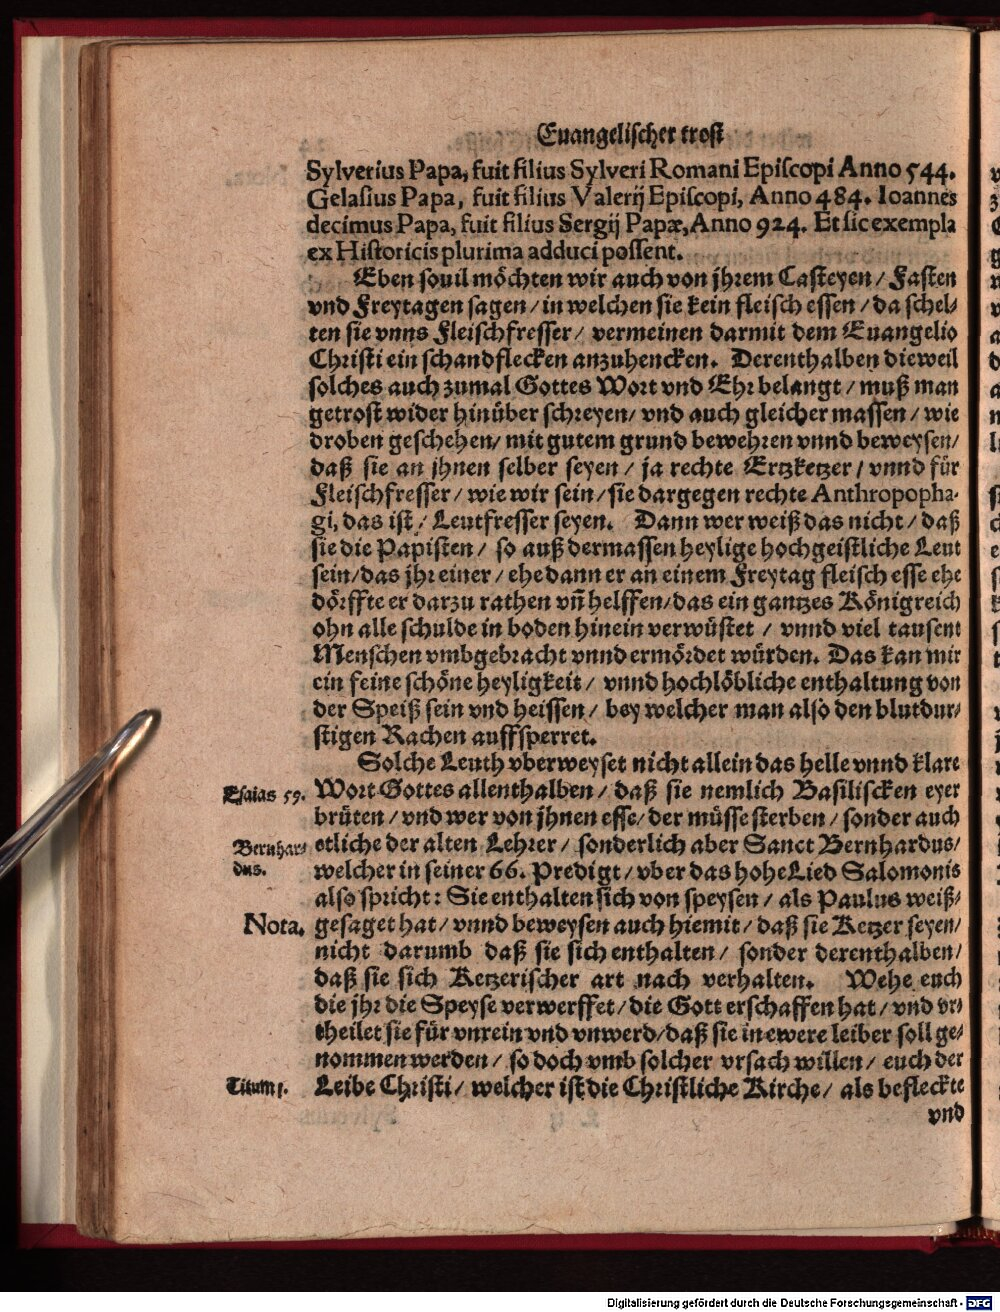 Euangelischer trost
Sylverius Papa, fuit filius Sylveri Romani Episcopi Anno 544.
Gelasius Papa, fuit filius Valerij Episcopi, Anno 484. Ioannes
decimus Papa, fuit filius Sergij Papæ, Anno 924. Et sic exempla
ex Historicis plurima adduci possent.
Eben souil möchten wir auch von jhrem Casteyen / Fasten
vnd Freytagen sagen / in welchen sie kein fleisch essen / da schel-
ten sie vnns Fleischfresser / vermeinen darmit dem Euangelio
Christi ein schandflecken anzuhencken. Derenthalben dieweil
solches auch zumal Gottes Wort vnd Ehr belangt / muß man
getrost wider hinüber schreyen / vnd auch gleicher massen / wie
droben geschehen / mit gutem grund bewehren vnnd beweysen /
daß sie an jhnen selber seyen / ja rechte Ertzketzer / vnnd für
Fleischfresser / wie wir sein / sie dargegen rechte Anthropopha-
gi, das ist / Leutfresser seyen. Dann wer weiß das nicht / daß
sie die Papisten / so auß dermassen heylige hochgeistliche Leut
sein / das jhr einer / ehe dann er an einem Freytag fleisch esse ehe
dörffte er darzu rathen vñ helffen / das ein gantzes Königreich
ohn alle schulde in boden hinein verwüstet / vnnd viel tausent
Menschen vmbgebracht vnnd ermördet würden. Das kan mir
ein feine schöne heyligkeit / vnnd hochlöbliche enthaltung von
der Speiß sein vnd heissen / bey welcher man also den blutdur-
stigen Rachen auffsperret.
Solche Leuth vberweyset nicht allein das helle vnnd klare
Esaias 59. Wort Gottes allenthalben / daß sie nemlich Basiliscken eyer
brüten / vnd wer von jhnen esse / der müsse sterben / sonder auch
Bernhar- etliche der alten Lehrer / sonderlich aber Sanct Bernhardus /
dus. welcher in seiner 66. Predigt / vber das hohe Lied Salomonis
also spricht: Sie enthalten sich von speysen / als Paulus weiß-
Nota. gesaget hat / vnnd beweysen auch hiemit / daß sie Ketzer seyen /
nicht darumb daß sie sich enthalten / sonder derenthalben /
daß sie sich Ketzerischer art nach verhalten. Wehe euch
die jhr die Speyse verwerffet / die Gott erschaffen hat / vnd vr-
theilet sie für vnrein vnd vnwerd / daß sie in ewere leiber soll ge-
nommen werden / so doch vmb solcher vrsach willen / euch der
Titum 1. Leibe Christi / welcher ist die Christliche Kirche / als befleckte
vnd
Digitalisierung gefördert durch die Deutsche Forschungsgemeinschaft - DFG